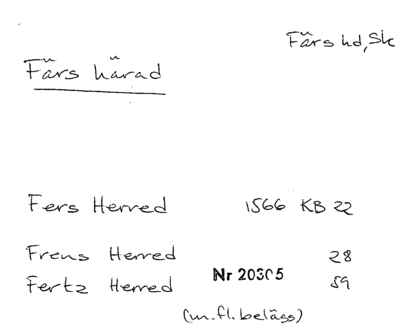 Färs hd, Sk
Färs härad
Fers Herred 1566 KB 22
Frens Herred 28
Fertz Herred Nr 20305 59
(m.fl. belägg)